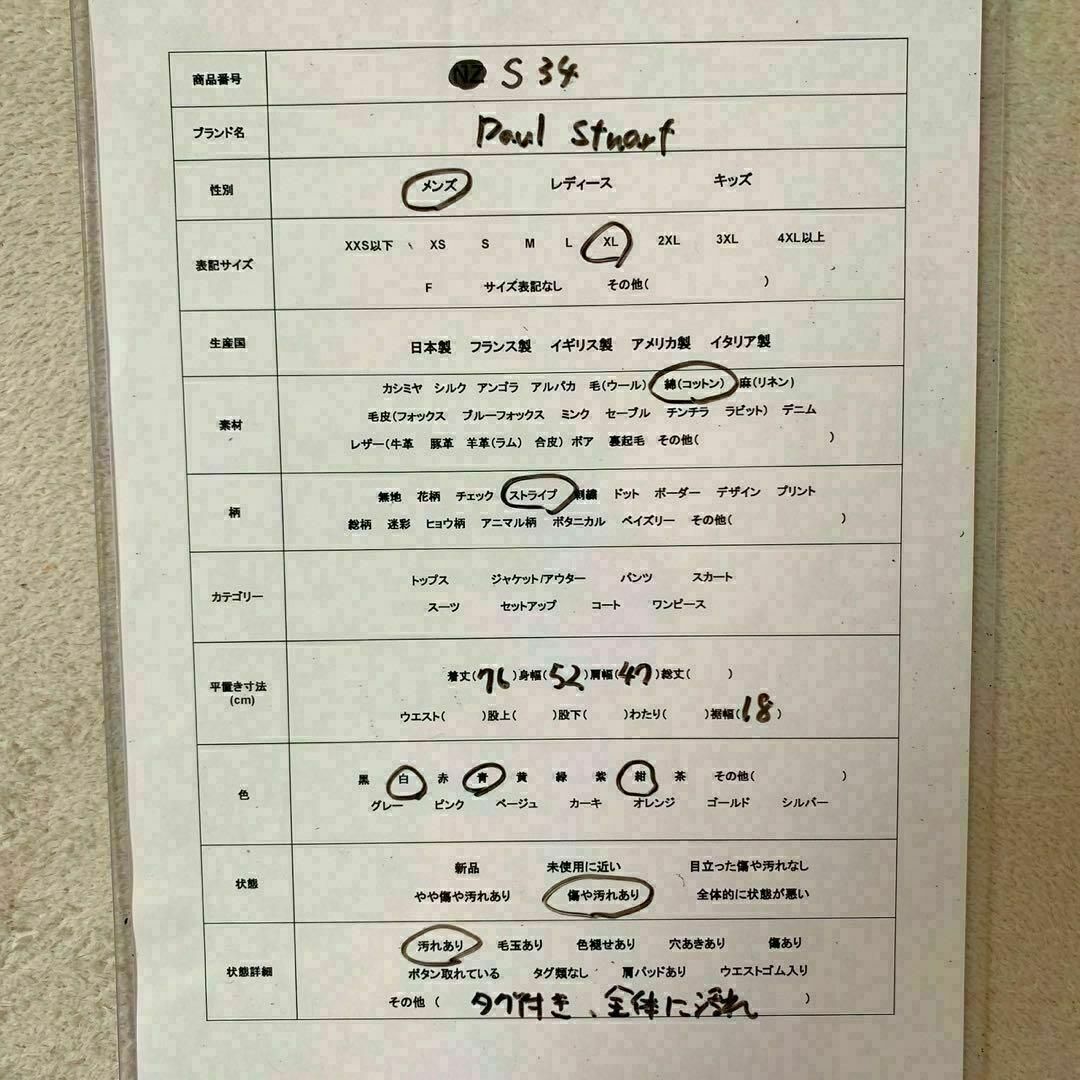 商品番号 NZ S 34
ブランド名 Paul Stuart
性別 メンズ レディース キッズ
表記サイズ XXS以下 、 XS S M L XL 2XL 3XL 4XL以上
F サイズ表記なし その他( )
生産国 日本製 フランス製 イギリス製 アメリカ製 イタリア製
素材 カシミヤ シルク アンゴラ アルパカ 毛(ウール) 綿(コットン) 麻(リネン)
毛皮(フォックス ブルーフォックス ミンク セーブル チンチラ ラビット) デニム
レザー(牛革 豚革 羊革(ラム) 合皮) ボア 裏起毛 その他( )
柄 無地 花柄 チェック ストライプ 刺繍 ドット ボーダー デザイン プリント
総柄 迷彩 ヒョウ柄 アニマル柄 ボタニカル ペイズリー その他( )
カテゴリー トップス ジャケット/アウター パンツ スカート
スーツ セットアップ コート ワンピース
平置き寸法 着丈(76)身幅(52)肩幅(47)総丈( )
(cm) ウエスト( )股上( )股下( )わたり( )裾幅(18)
色 黒 白 赤 青 黄 緑 紫 紺 茶 その他( )
グレー ピンク ベージュ カーキ オレンジ ゴールド シルバー
状態 新品 未使用に近い 目立った傷や汚れなし
やや傷や汚れあり 傷や汚れあり 全体的に状態が悪い
状態詳細 汚れあり 毛玉あり 色褪せあり 穴あきあり 傷あり
ボタン取れている タグ類なし 肩パッドあり ウエストゴム入り
その他 ( タグ付き、全体に汚れ )